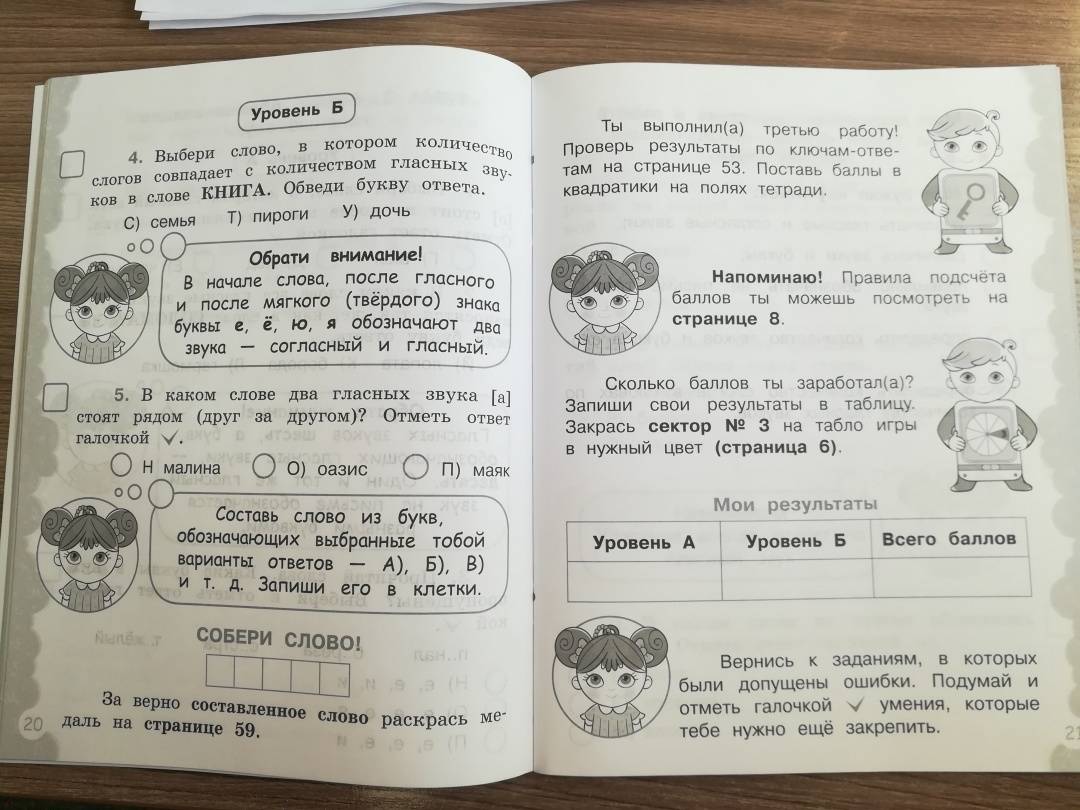 Уровень Б
4. Выбери слово, в котором количество
слогов совпадает с количеством гласных зву-
ков в слове КНИГА. Обведи букву ответа.
С) семья Т) пироги У) дочь
Обрати внимание!
В начале слова, после гласного
и после мягкого (твёрдого) знака
буквы е, ё, ю, я обозначают два
звука — согласный и гласный.
5. В каком слове два гласных звука [а]
стоят рядом (друг за другом)? Отметь ответ
галочкой ✓.
Н малина О) оазис П) маяк
Составь слово из букв,
обозначающих выбранные тобой
варианты ответов — А), Б), В)
и т. д. Запиши его в клетки.
СОБЕРИ СЛОВО!
За верно составленное слово раскрась ме-
даль на странице 59.
20
Ты выполнил(а) третью работу!
Проверь результаты по ключам-отве-
там на странице 53. Поставь баллы в
квадратики на полях тетради.
Напоминаю! Правила подсчёта
баллов ты можешь посмотреть на
странице 8.
Сколько баллов ты заработал(а)?
Запиши свои результаты в таблицу.
Закрась сектор № 3 на табло игры
в нужный цвет (страница 6).
Мои результаты
Уровень А Уровень Б Всего баллов
Вернись к заданиям, в которых
были допущены ошибки. Подумай и
отметь галочкой ✓ умения, которые
тебе нужно ещё закрепить.
21